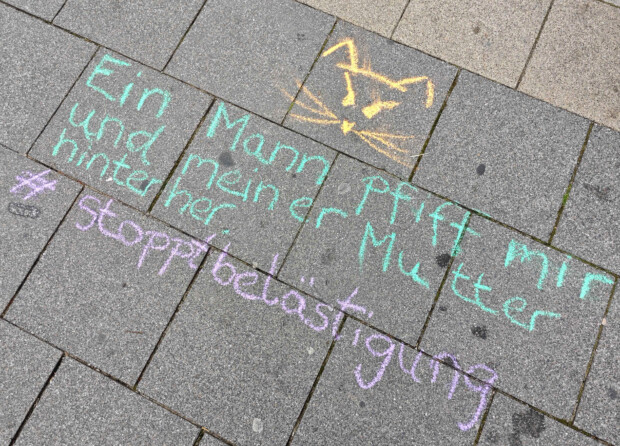 Ein Mann pfiff mir
und meiner Mutter
hinterher
#stoppbelästigung